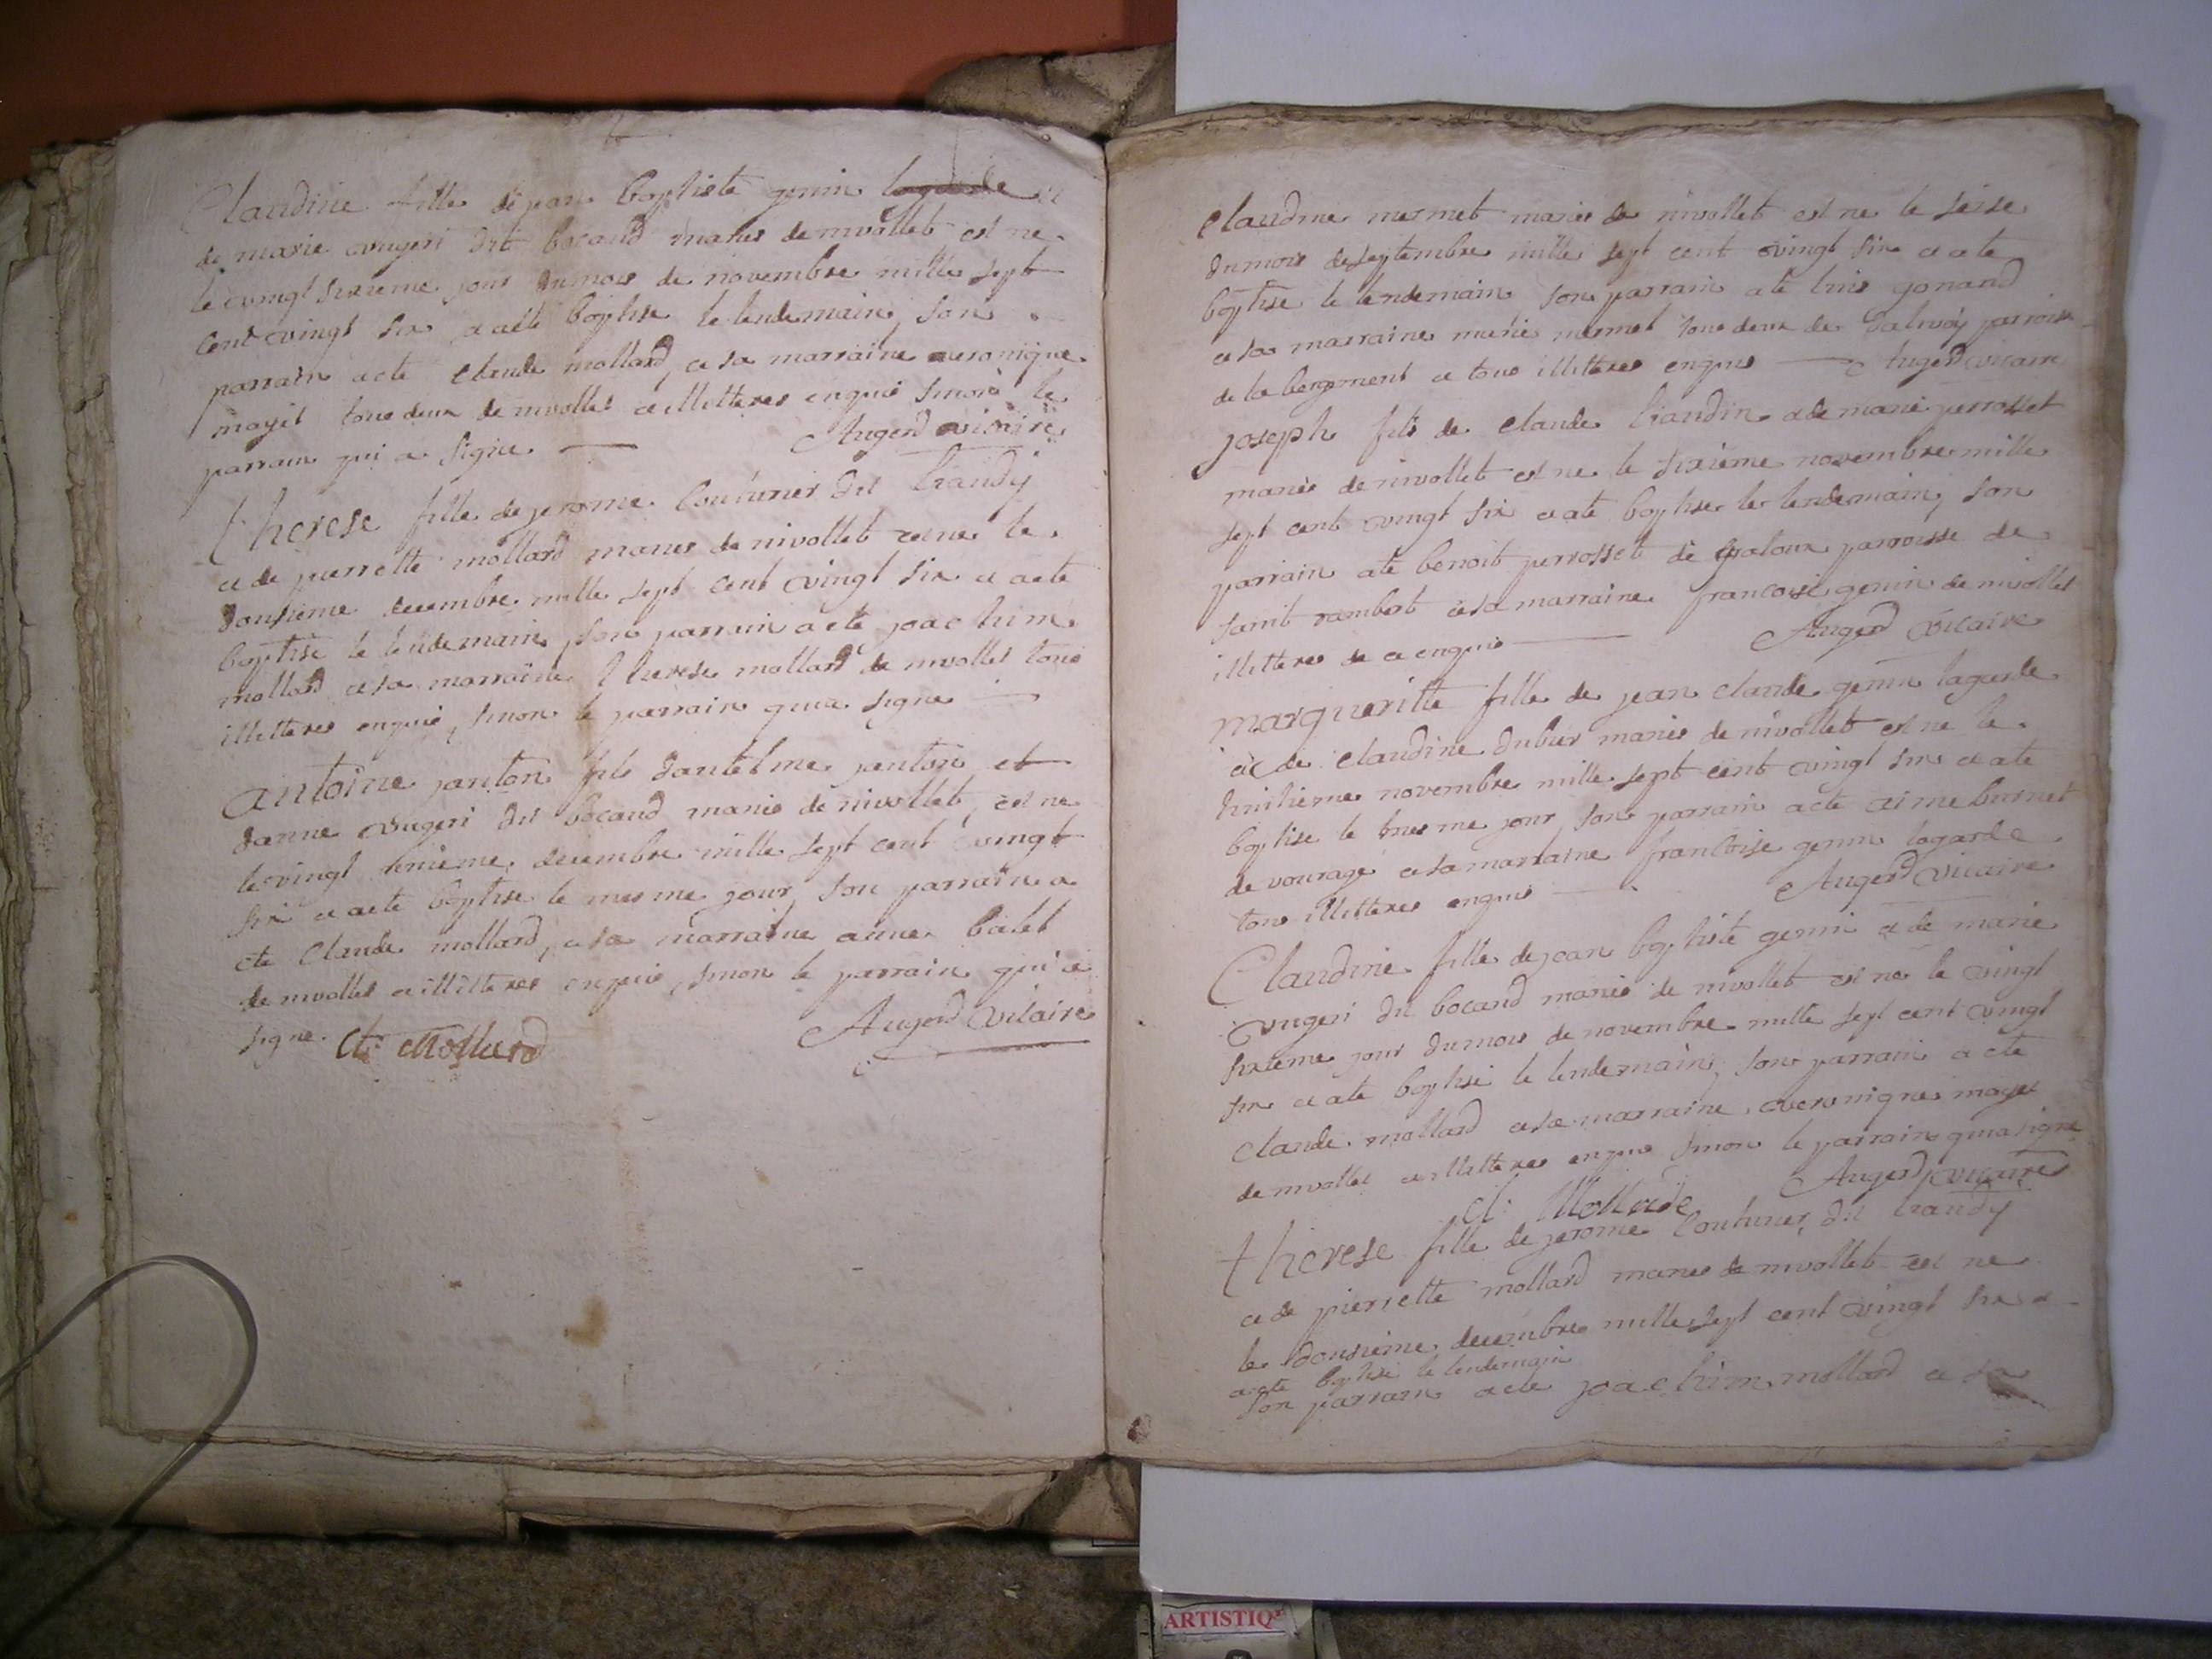 Claudine fille de jean baptiste genin lagarde et
de marie vugeri dit bocand maries de nivollet est ne
le vingt sixieme jour du mois de novembre mille sept
cent vingt six a ete baptise le lendemain, son
parrain a ete claude mollard, et sa marraine veronique
mayet tous deux de nivollet et illitteres enquis sinon le
parrain qui a signe Augerd vicaire
therese fille de jerome couturier dit liaudy
et de pierrette mollard maries de nivollet est ne le
dousieme decembre mille sept cent vingt six et a ete
baptise le lendemain, son parrain a ete joachim
mollard et sa marraine therese mollard de nivollet tous
illitteres enquis, sinon le parrain qui a signe
antoine janton fils dantelme janton et
danne vugeri dit bocand maries de nivollet, est ne
le vingt decembre mille sept cent vingt
six et a ete baptise le mesme jour, son parrain a
ete Claude mollard, et sa marraine anne
de nivollet et illitteres enquis, sinon le parrain qui a
signe. Cl: Mollard Augerd Vicaire
claudine mermet maries de nivollet est ne le seise
du mois de septembre mille sept cent vingt six et a ete
baptise le lendemain son parrain a ete gonand
et sa marraine marie mermet tous deux de parroisse
de et tous illitteres enquis Augerd vicaire
joseph fils de claude liaudin et de marie perrosset
maries de nivollet est ne le sixieme novembre mille
sept cent vingt six et a ete baptise le lendemain, son
parrain a ete benoit perrosset de parroisse de
saint rambert et sa marraine francoise genin de nivollet
illitteres de ce enquis Augerd Vicaire
margueritte fille de jean claude genin lagarde
et de claudine maries de nivollet est ne le
huitieme novembre mille sept cent vingt six et a ete
baptise le mesme jour, son parrain a ete
de et sa marraine francoise genin lagarde
tous illitteres enquis Augerd vicaire
Claudine fille de jean baptiste genin et de marie
vugeri dit bocand maries de nivollet est ne le vingt
sixieme jour du mois de novembre mille sept cent vingt
six et a ete baptise le lendemain; son parrain a ete
claude mollard et sa marraine veronique mayet
de nivollet et illitteres enquis sinon le parrain qui a signe
Cl: Mollard Augerd vicaire
therese fille de jerome couturier dit liaudy
et de pierrette mollard maries de nivollet est ne
le dousieme decembre mille sept cent vingt six et
a ete baptise le lendemain
son parrain a ete joachim mollard et sa
ARTISTIQ